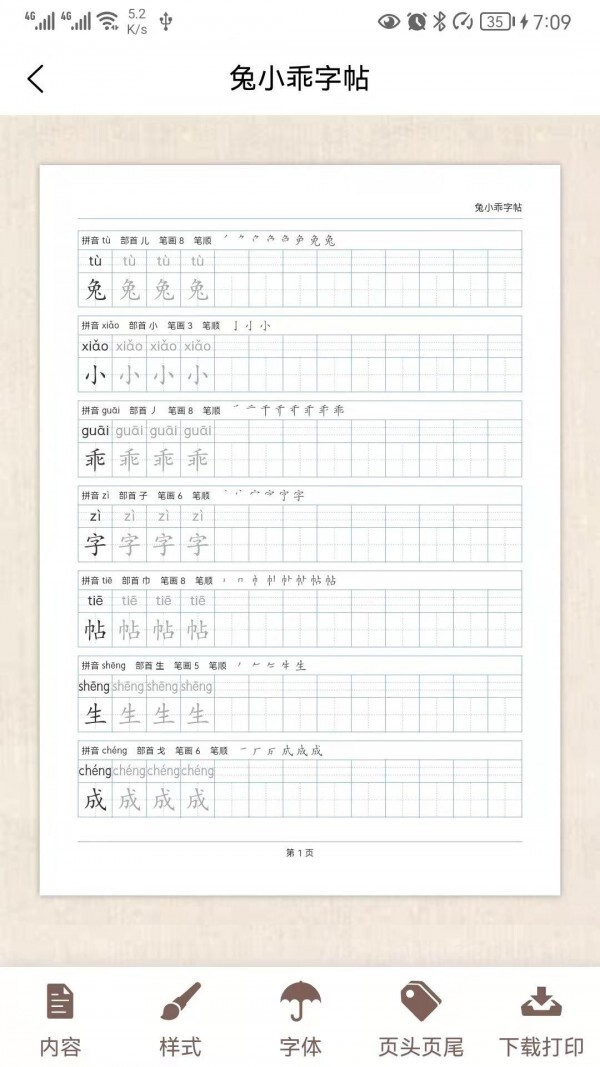 4G 4G 5.2 K/s 35 7:09
兔小乖字帖
兔小乖字帖
拼音 tù 部首 儿 笔画 8 笔顺
tù tù tù tù
兔 兔 兔 兔
拼音 xiǎo 部首 小 笔画 3 笔顺 亅 小 小
xiǎo xiǎo xiǎo xiǎo
小 小 小 小
拼音 guāi 部首 丿 笔画 8 笔顺
guāi guāi guāi guāi
乖 乖 乖 乖
拼音 zì 部首 子 笔画 6 笔顺
zì zì zì zì
字 字 字 字
拼音 tiē 部首 巾 笔画 8 笔顺
tiē tiē tiē tiē
帖 帖 帖 帖
拼音 shēng 部首 生 笔画 5 笔顺
shēng shēng shēng shēng
生 生 生 生
拼音 chéng 部首 戈 笔画 6 笔顺
chéng chéng chéng chéng
成 成 成 成
第 1 页
内容 样式 字体 页头页尾 下载打印